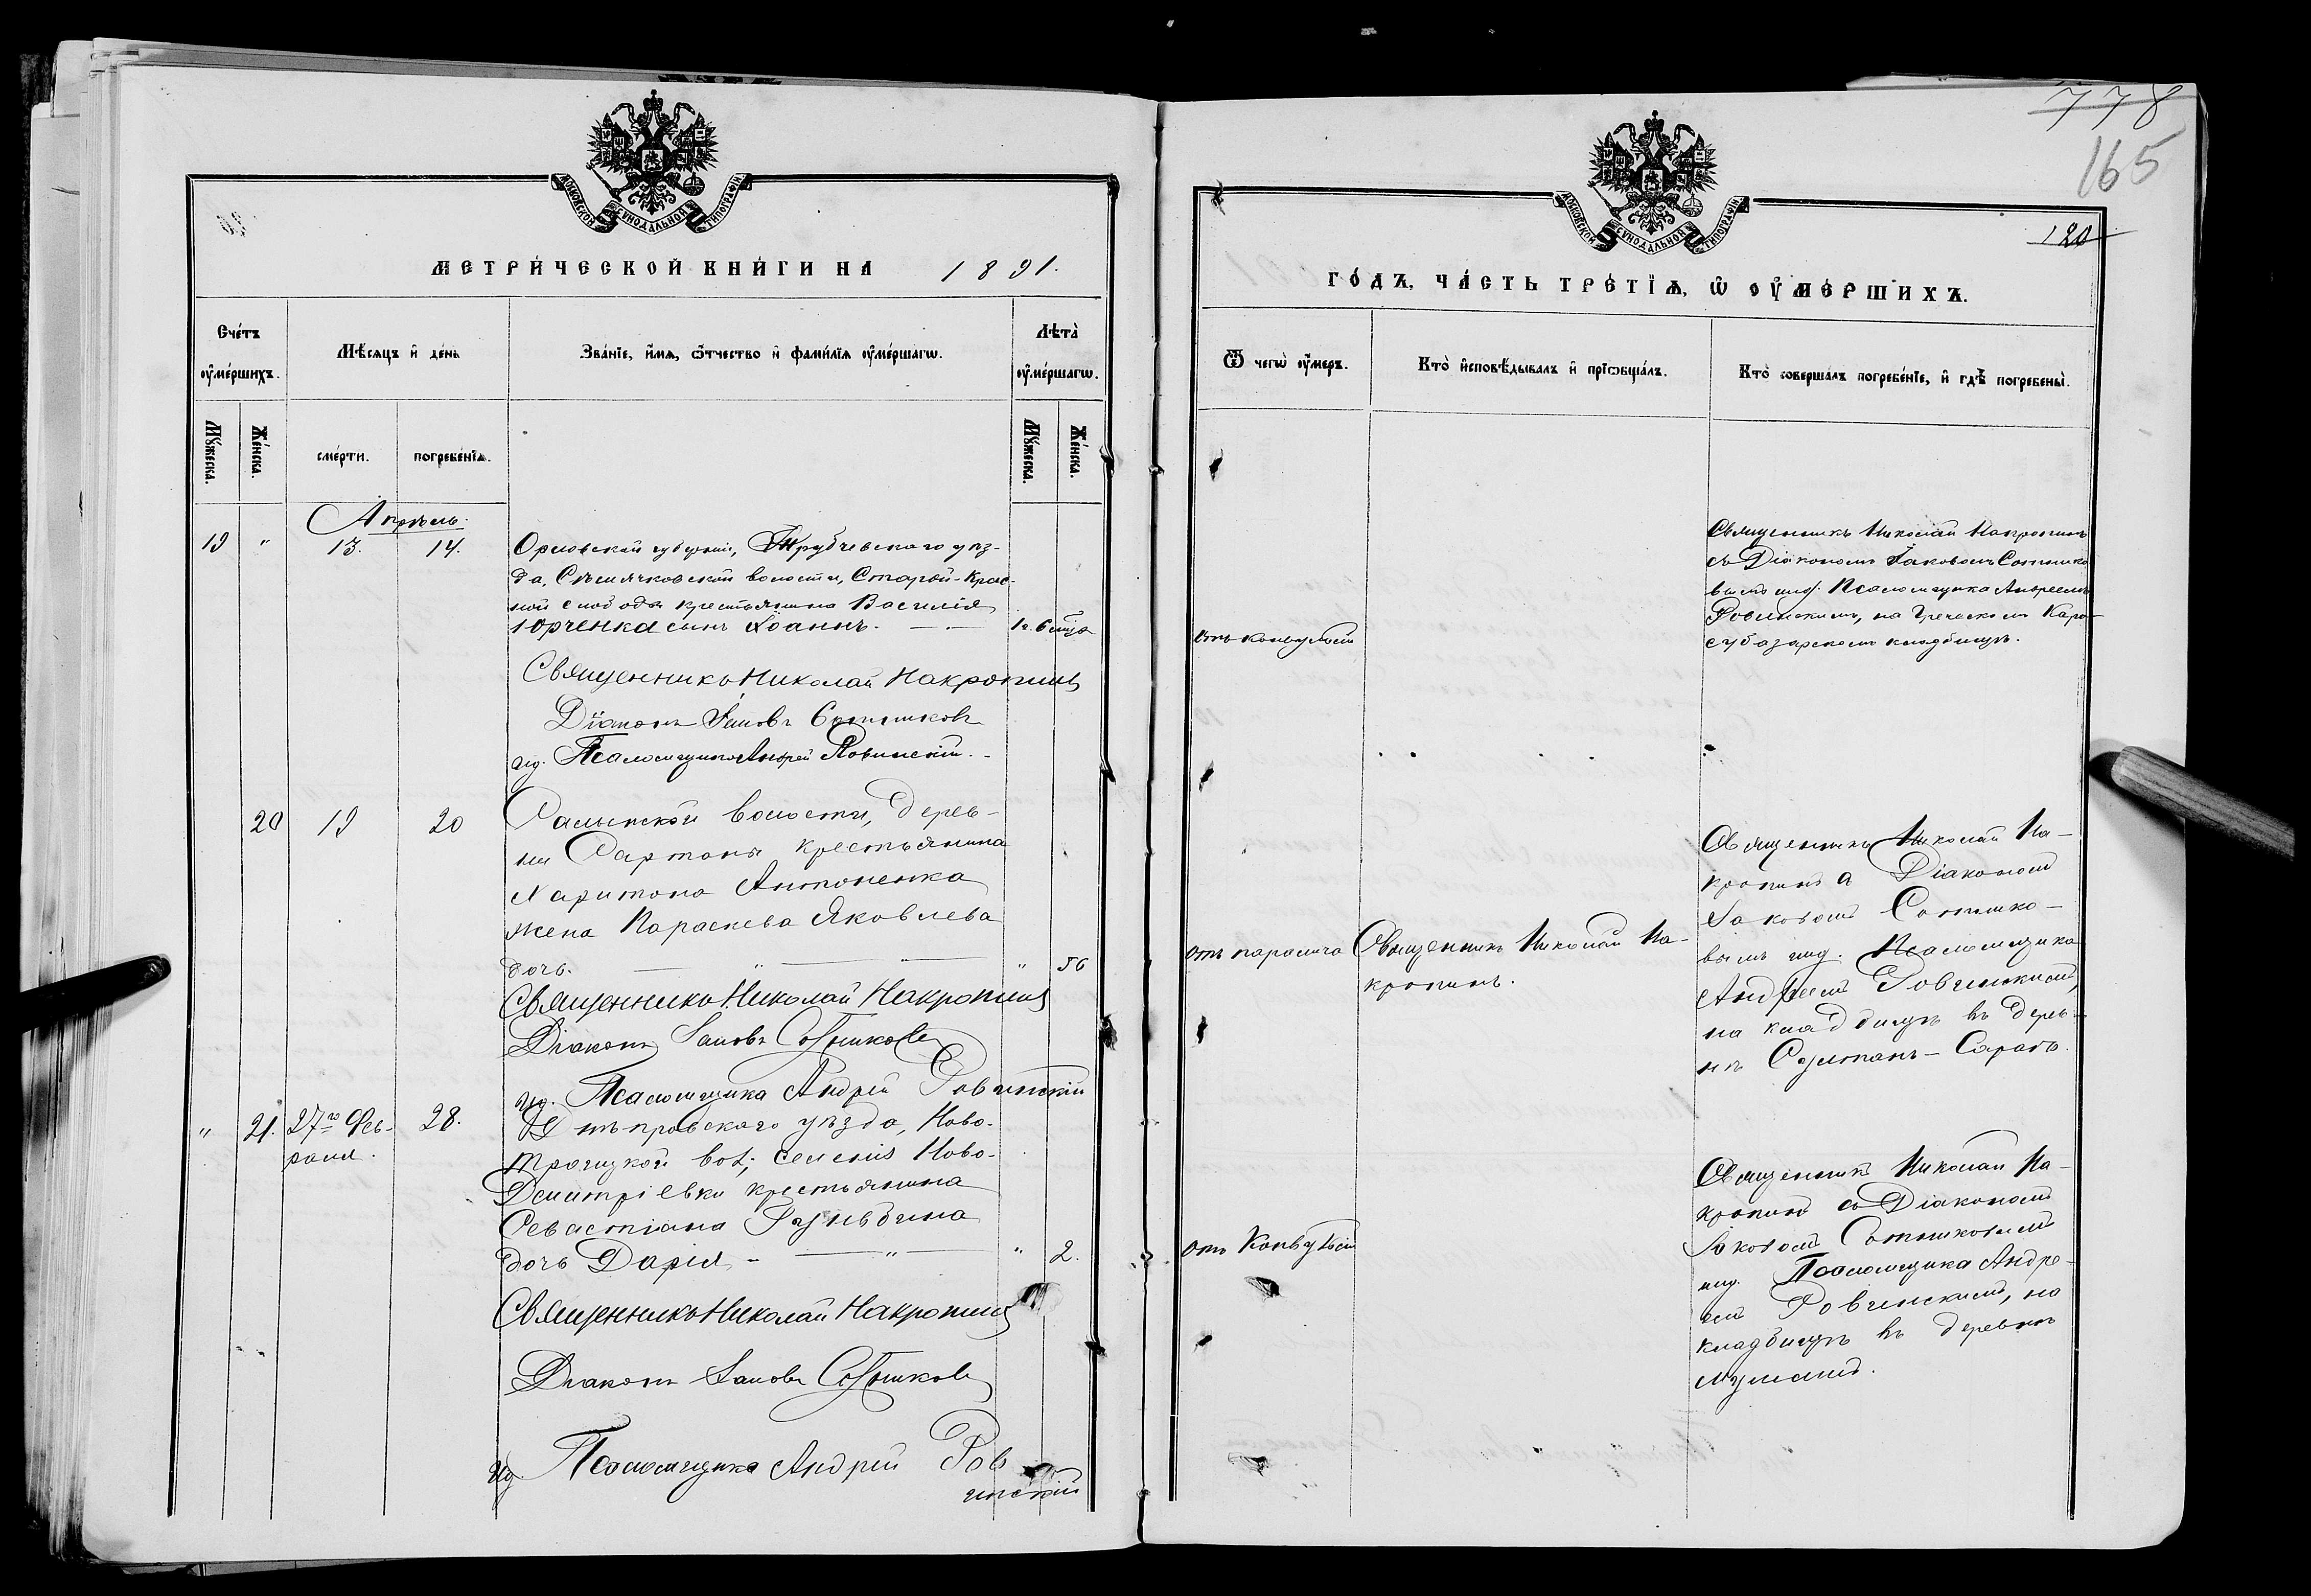 778
165
120
МОСКОВСКОЙ СУНОДАЛЬНОЙ ТИПОГРАФІИ
МЕТРИЧЕСКОЙ КНИГИ НА 1891.
Счетъ умершихъ.
Мѣсяцъ и день
Званіе, имя, отчество и фамилія умершагѡ.
Лѣта умершагѡ.
Мужеска.
Женска.
смерти.
погребенія.
Мужеска.
Женска.
Апрѣль.
19 " 13. 14. Орловской губерніи, Трубчевскаго уѣз-
да, волости, Старой-Крас-
ной слободы крестьянина Василія
Юрченка сынъ Іоаннъ. — — 1г. 6 мца
Священникъ Николай Накропинъ
Діаконъ Іаковъ Сотниковъ
ид. Псаломщика Андрей Ровинскій.
20 19 20 волости, дерев-
ни Сартаны крестьянина
Харитона Антоненка
жена Параскева Яковлева
дочь. — " — — " 56
Священникъ Николай Накропинъ
Діаконъ Іаковъ Сотниковъ
ид. Псаломщика Андрей Ровинскій
" 21. 27го Фев- 28. Днѣпровскаго уѣзда, Ново-
раля.
троицкой вол., селенія Ново-
Дмитріевки крестьянина
Севастіана
дочь Дарія - — " — " 2.
Священникъ Николай Накропинъ
Діаконъ Іаковъ Сотниковъ
ид. Псаломщика Андрей Ров-
инскій
МОСКОВСКОЙ СУНОДАЛЬНОЙ ТИПОГРАФІИ
ГОДЪ, ЧАСТЬ ТРЕТІЯ, Ѡ ОУМЕРШИХЪ.
Ѿ чегѡ умеръ.
Кто исповѣдывалъ и пріѡбщалъ.
Кто совершалъ погребеніе, и гдѣ погребены.
Священникъ Николай Накропинъ
съ Діакономъ Іаковомъ Сотнико-
вымъ ид. Псаломщика Андреемъ
Ровинскимъ, на Греческомъ Кара-
субазарскомъ кладбищѣ.
отъ конвульсій
Священникъ Николай На-
кропинъ съ Діакономъ
Іаковомъ Сотнико-
вымъ ид. Псаломщика
Андреемъ Ровинскимъ,
на кладбищѣ въ дерев-
нѣ Султанъ-Сарай.
отъ паралича Священникъ Николай На-
кропинъ.
Священникъ Николай На-
кропинъ съ Діакономъ
Іаковомъ Сотниковымъ
ид. Псаломщика Андре-
емъ Ровинскимъ, на
кладбищѣ въ деревнѣ
отъ Конвульсій